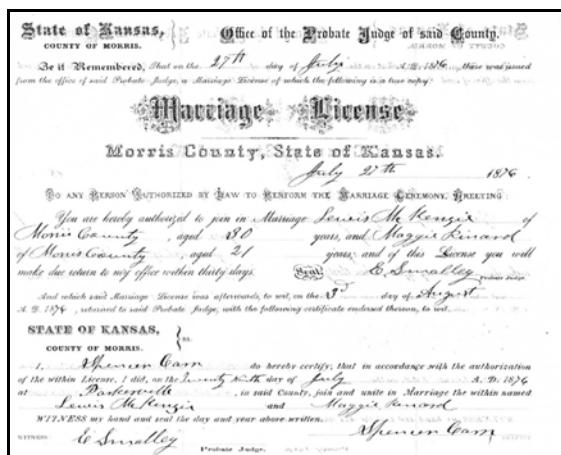 State of Kansas, Office of the Probate Judge of said County.
COUNTY OF MORRIS.
Be it Remembered, That on the 27th day of July A. D. 1876, there was issued
from the office of said Probate Judge, a Marriage License of which the following is a true copy:
Marriage License
Morris County, State of Kansas.
July 27th 1876
TO ANY PERSON AUTHORIZED BY LAW TO PERFORM THE MARRIAGE CEREMONY, GREETING
You are hereby authorized to join in Marriage Lewis McKenzie of
Morris County, aged 30 years, and Maggie Kinard
of Morris County, aged 21 years; and of this License you will
make due return to my office within thirty days. Seal E Smalley Probate Judge.
And which said Marriage License was afterwards, to wit, on the 3d day of August
A. D. 1876, returned to said Probate Judge, with the following certificate endorsed thereon, to wit,
STATE OF KANSAS,
COUNTY OF MORRIS. ss.
I, Spencer Carr do hereby certify, that in accordance with the authorization
of the within License, I did, on the Twenty Ninth day of July A. D. 1876
at Parkerville, in said County, join and unite in Marriage the within named
Lewis McKenzie and Maggie Kinard
WITNESS my hand and seal the day and year above written.
Spencer Carr
WITNESS: E Smalley
Probate Judge.